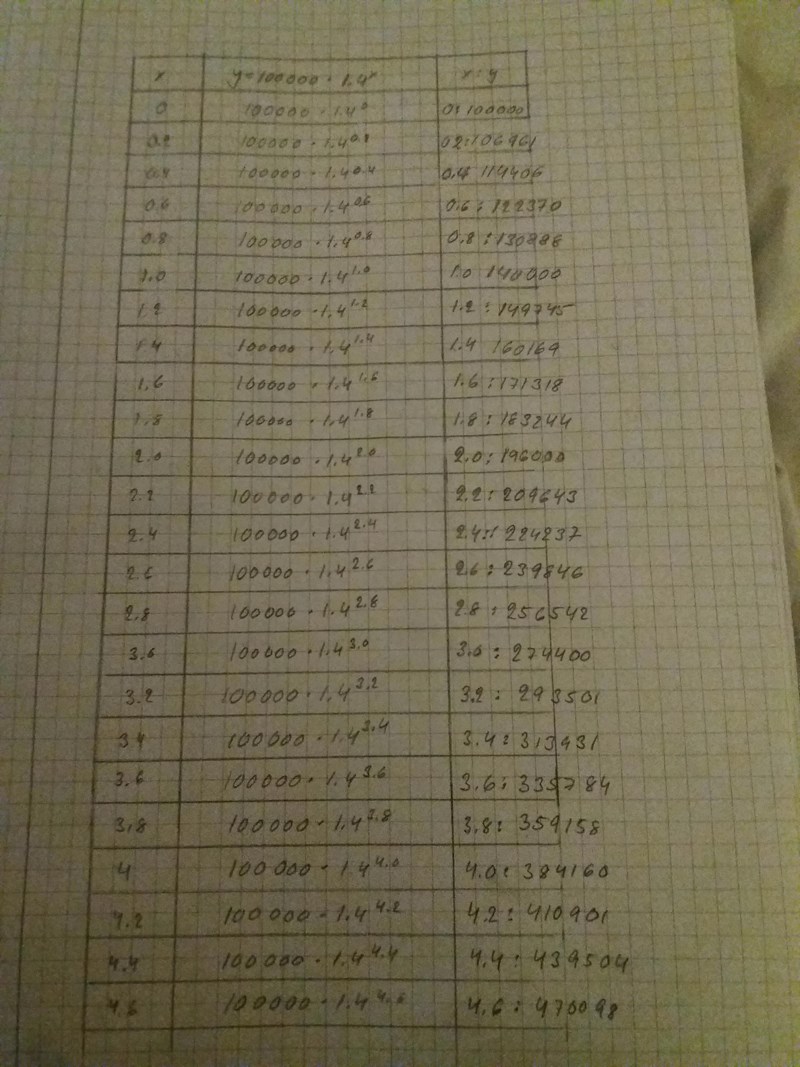 x y=100000·1.4^x x:y
0 100000·1.4^0 0:100000
0.2 100000·1.4^0.2 0.2:106961
0.4 100000·1.4^0.4 0.4 114406
0.6 100000·1.4^0.6 0.6:122370
0.8 100000·1.4^0.8 0.8:130888
1.0 100000·1.4^1.0 1.0 140000
1.2 100000·1.4^1.2 1.2:149745
1.4 100000·1.4^1.4 1.4 160169
1.6 100000·1.4^1.6 1.6:171318
1.8 100000·1.4^1.8 1.8:183244
2.0 100000·1.4^2.0 2.0:196000
2.2 100000·1.4^2.2 2.2:209643
2.4 100000·1.4^2.4 2.4: 224237
2.6 100000·1.4^2.6 2.6:239846
2.8 100000·1.4^2.8 2.8:256542
3.0 100000·1.4^3.0 3.0:274400
3.2 100000·1.4^3.2 3.2: 293501
3.4 100000·1.4^3.4 3.4:313931
3.6 100000·1.4^3.6 3.6:335784
3.8 100000·1.4^3.8 3.8: 359158
4 100000·1.4^4.0 4.0:384160
4.2 100000·1.4^4.2 4.2:410901
4.4 100000·1.4^4.4 4.4:439504
4.6 100000·1.4^4.6 4.6:470098